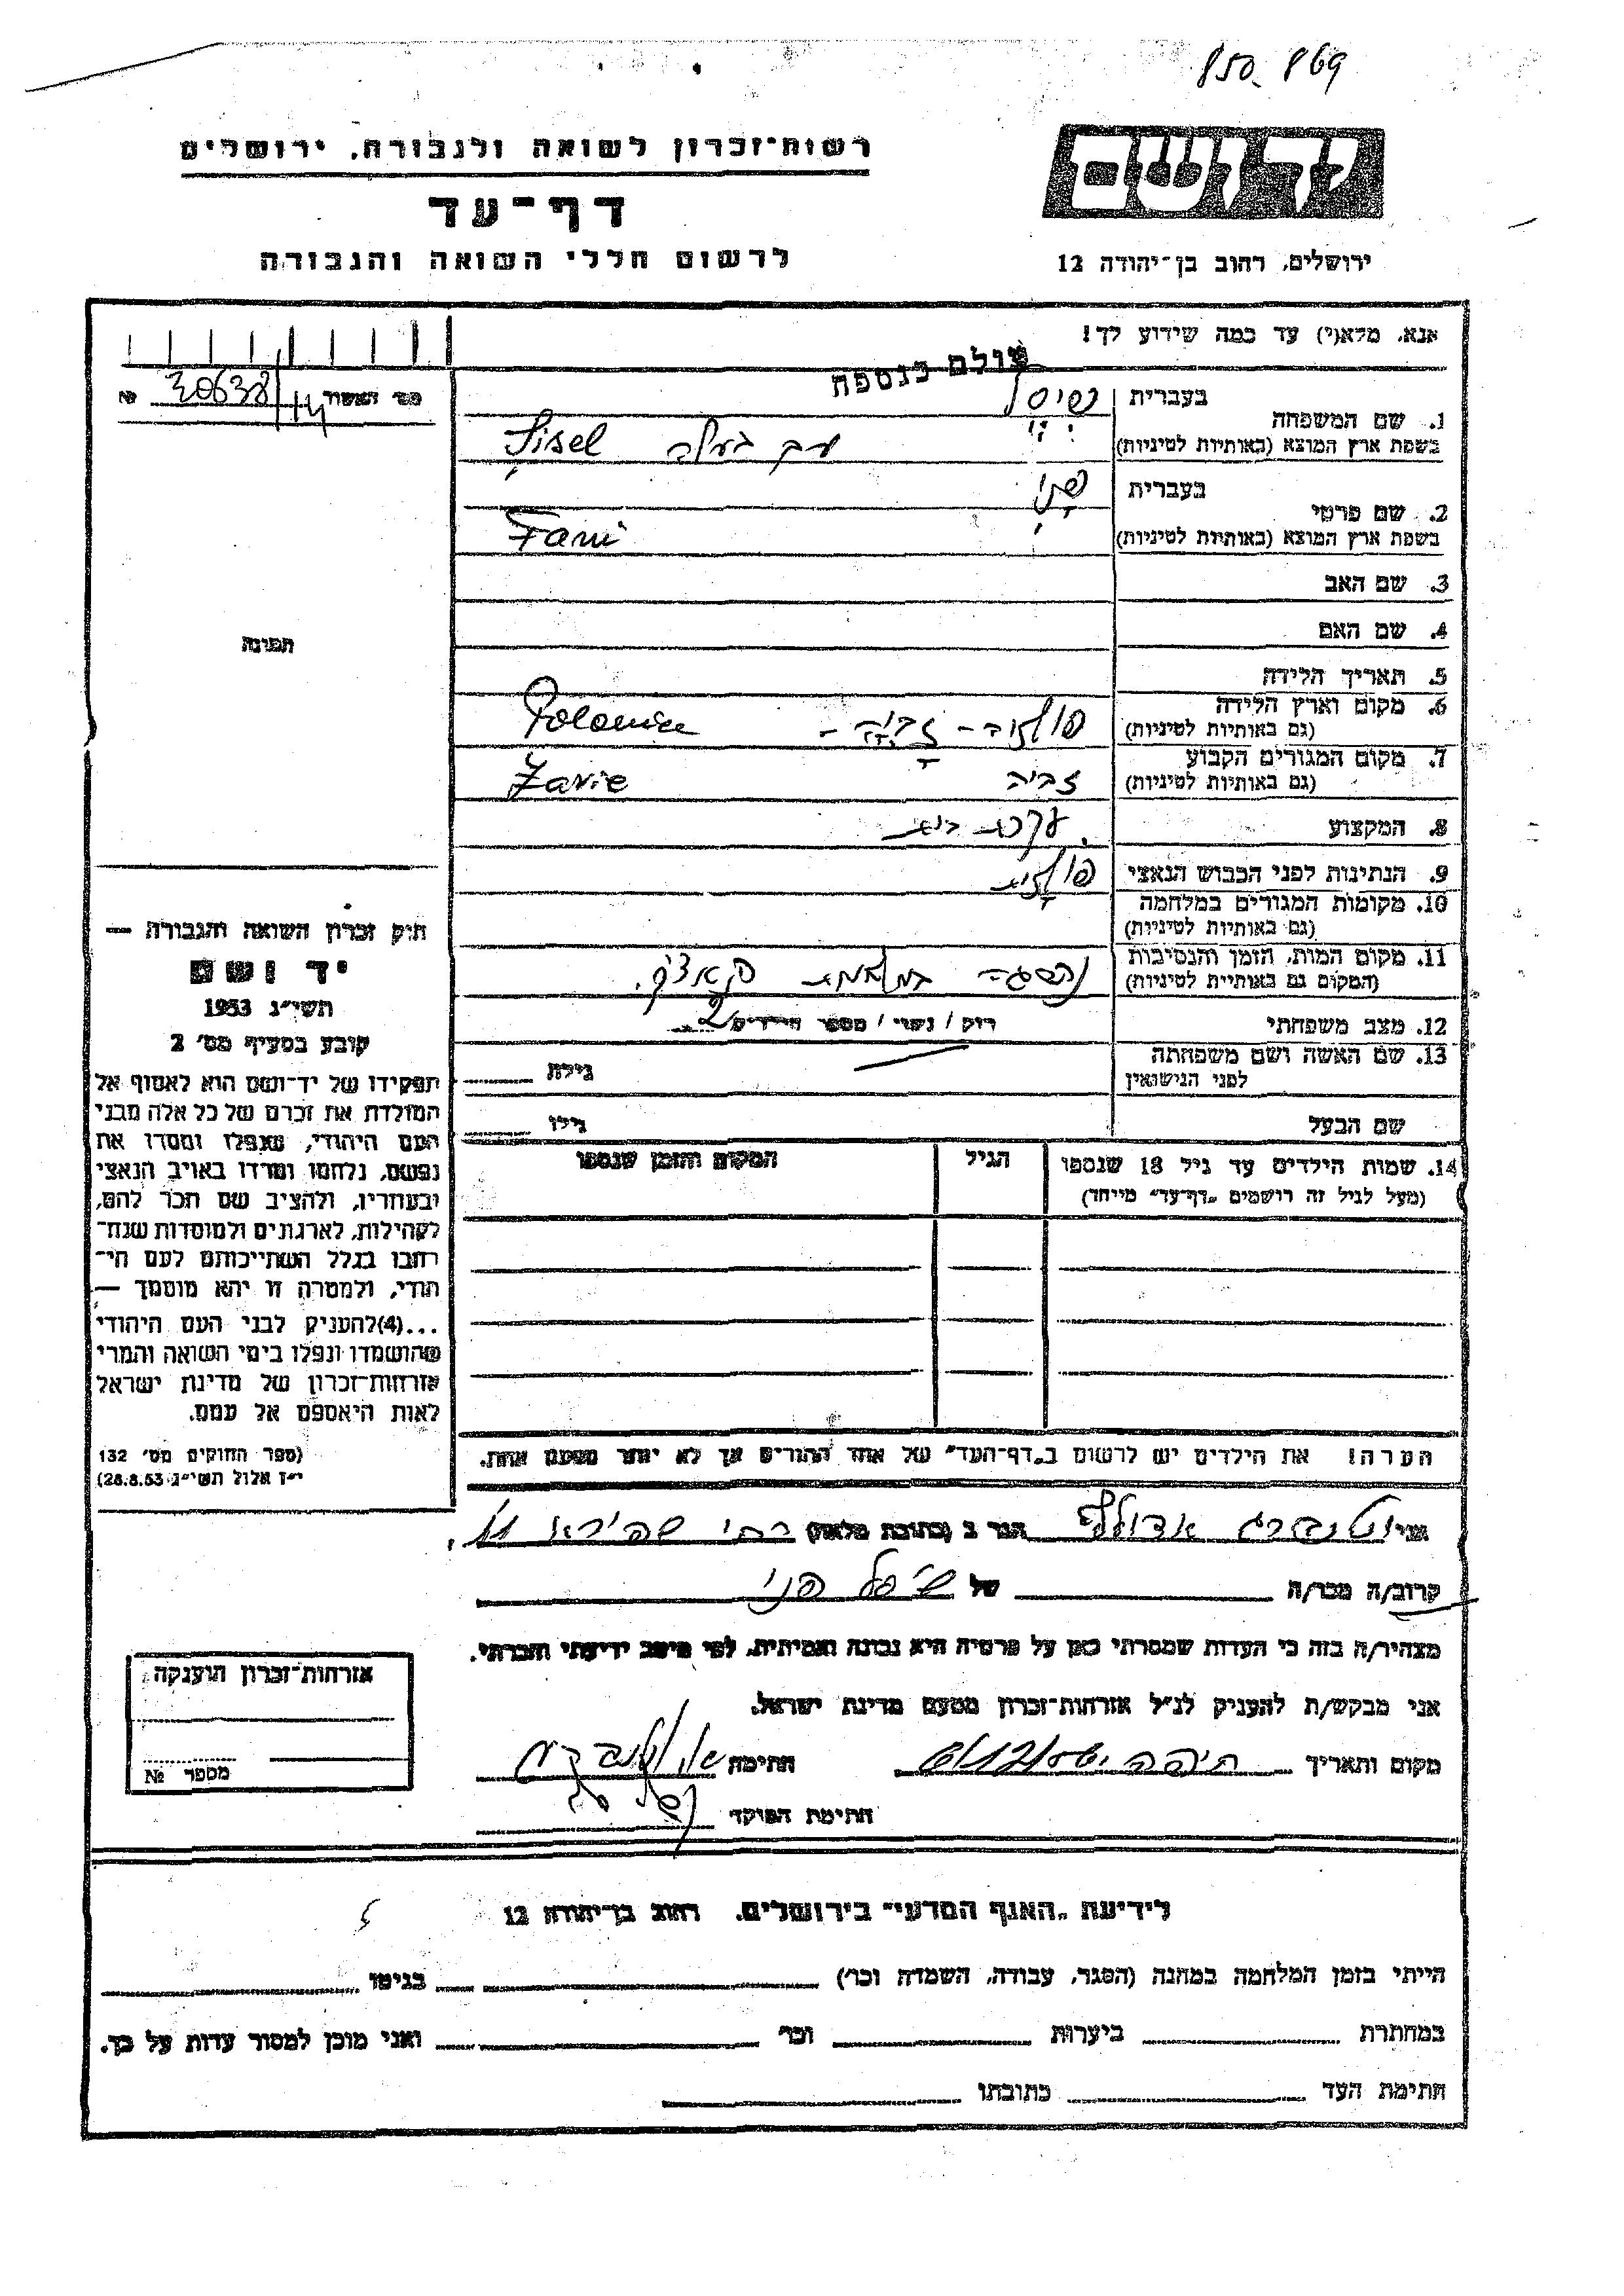 850.869
רשות־זכרון לשואה ולגבורה, ירושלים
דף־עד
לרשום חללי השואה והגבורה
יד ושם
ירושלים, רחוב בן־יהודה 12
אנא, מלא(י) עד כמה שידוע לך!
שולם כנספח
מס׳ האשור 30638/14 №
1. שם המשפחה
בעברית שיסל
בשפת ארץ המוצא (באותיות לטיניות) Sisel
2. שם פרטי
בעברית פני
בשפת ארץ המוצא (באותיות לטיניות) Fani
3. שם האב
4. שם האם
5. תאריך הלידה
6. מקום וארץ הלידה
(גם באותיות לטיניות) פולניה - זביה - Polonia
7. מקום המגורים הקבוע
(גם באותיות לטיניות) זביה Zavie
8. המקצוע עקרת בית
9. הנתינות לפני הכבוש הנאצי פולנית
10. מקומות המגורים במלחמה
(גם באותיות לטיניות)
11. מקום המות, הזמן והנסיבות
(המקום גם באותיות לטיניות) נספה במחנה
12. מצב משפחתי רווק / נשוי / מספר הילדים 2
13. שם האשה ושם משפחתה
לפני הנישואין גילה
שם הבעל גילו
14. שמות הילדים עד גיל 18 שנספו הגיל המקום והזמן שנספו
(מעל לגיל זה רושמים „דף־עד״ מיוחד)
הערה! את הילדים יש לרשום ב„דף־העד״ של אחד ההורים אך לא יותר מפעם אחת.
תמונה
חוק זכרון השואה והגבורה —
יד ושם
תשי״ג 1953
קובע בסעיף מס׳ 2
תפקידו של יד־ושם הוא לאסוף אל
המולדת את זכרם של כל אלה מבני
העם היהודי, שנפלו ומסרו את
נפשם, נלחמו ומרדו באויב הנאצי
ובעוזריו, ולהציב שם וזכר להם,
לקהילות, לארגונים ולמוסדות שנח־
רבו בגלל השתייכותם לעם הי־
הודי, ולמטרה זו יהא מוסמך —
...(4) להעניק לבני העם היהודי
שהושמדו ונפלו בימי השואה והמרי
אזרחות־זכרון של מדינת ישראל
לאות היאספם אל עמם.
(ספר החוקים מס׳ 132
י״ז אלול תשי״ג 28.8.53)
אני וטנברג אדולף הגר ב (כתובת מלאה) רח׳ שפירא 11
קרוב/ה מכר/ה של שיסל פני
מצהיר/ה בזה כי העדות שמסרתי כאן על פרטיה היא נכונה ואמיתית, לפי מיטב ידיעתי והכרתי.
אני מבקש/ת להעניק לנ״ל אזרחות־זכרון מטעם מדינת ישראל.
מקום ותאריך חיפה חתימה
חתימת הפוקד
אזרחות־זכרון הוענקה
מספר №
לידיעת „האגף המדעי״ בירושלים, רחוב בן־יהודה 12
הייתי בזמן המלחמה במחנה (הסגר, עבודה, השמדה וכר׳) בגיטו
במחתרת ביערות וכר׳ ואני מוכן למסור עדות על כך.
חתימת העד כתובתו